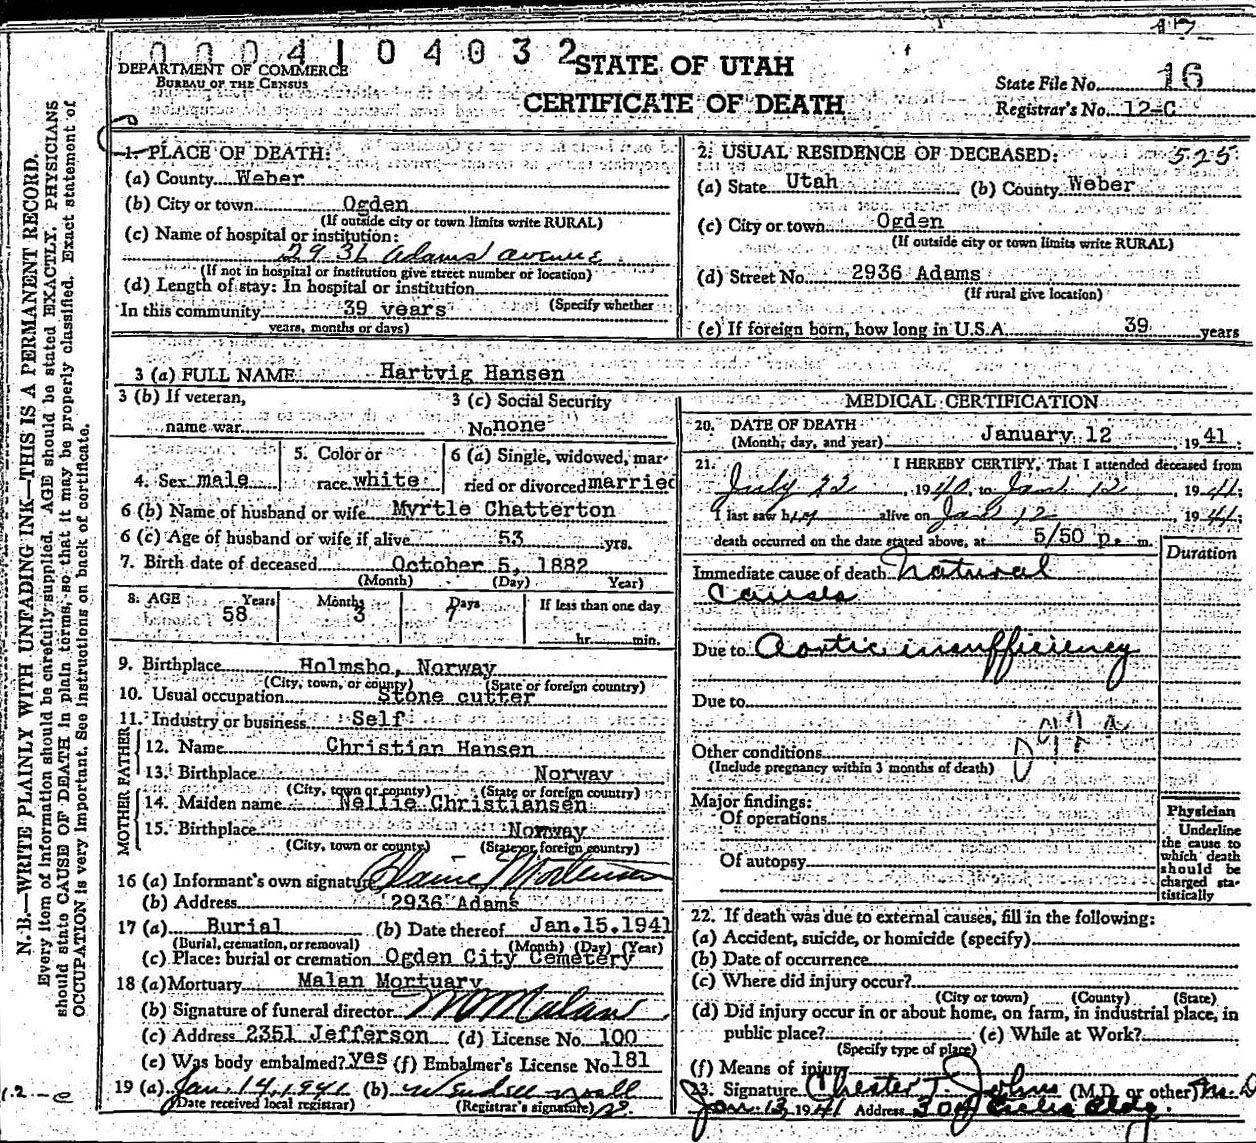 0004104032
17
DEPARTMENT OF COMMERCE
BUREAU OF THE CENSUS
STATE OF UTAH
CERTIFICATE OF DEATH
State File No. 16
Registrar's No. 12-C
N.B.—WRITE PLAINLY WITH UNFADING INK—THIS IS A PERMANENT RECORD.
Every item of information should be carefully supplied. AGE should be stated EXACTLY. PHYSICIANS
should state CAUSE OF DEATH in plain terms, so that it may be properly classified. Exact statement of
OCCUPATION is very important. See instructions on back of certificate.
1. PLACE OF DEATH:
(a) County Weber
(b) City or town Ogden
(If outside city or town limits write RURAL)
(c) Name of hospital or institution:
2936 Adams avenue
(If not in hospital or institution give street number or location)
(d) Length of stay: In hospital or institution
(Specify whether
In this community 39 years
years, months or days)
2. USUAL RESIDENCE OF DECEASED: 525
(a) State Utah (b) County Weber
(c) City or town Ogden
(If outside city or town limits write RURAL)
(d) Street No. 2936 Adams
(If rural give location)
(e) If foreign born, how long in U.S.A. 39 years
3 (a) FULL NAME Hartvig Hansen
3 (b) If veteran,
name war
3 (c) Social Security
No. none
4. Sex male
5. Color or
race white
6 (a) Single, widowed, mar-
ried or divorced married
6 (b) Name of husband or wife Myrtle Chatterton
6 (c) Age of husband or wife if alive 53 yrs.
7. Birth date of deceased October 5, 1882
(Month) (Day) Year)
8. AGE Years Months Days If less than one day
58 3 7 hr. min.
9. Birthplace Holmsbo, Norway
(City, town, or county) (State or foreign country)
10. Usual occupation Stone cutter
11. Industry or business Self
FATHER
12. Name Christian Hansen
13. Birthplace Norway
(City, town or county) (State or foreign country)
MOTHER
14. Maiden name Nellie Christiansen
15. Birthplace Norway
(City, town or county) (State or foreign country)
16 (a) Informant's own signature Blaine Mortensen
(b) Address 2936 Adams
17 (a) Burial (b) Date thereof Jan.15.1941
(Burial, cremation, or removal) (Month) (Day) (Year)
(c) Place: burial or cremation Ogden City Cemetery
18 (a) Mortuary Malan Mortuary
(b) Signature of funeral director Malan
(c) Address 2351 Jefferson (d) License No. 100
(e) Was body embalmed? yes (f) Embalmer's License No. 181
19 (a) Jan. 14, 1941 (b)
(Date received local registrar) (Registrar's signature)
MEDICAL CERTIFICATION
20. DATE OF DEATH
(Month, day, and year) January 12 1941
21. I HEREBY CERTIFY, That I attended deceased from
July 22, 1940, to Jan 12, 1941;
I last saw him alive on Jan 12, 1941;
death occurred on the date stated above, at 5/50 p. m.
Duration
Immediate cause of death Natural
Causes
Due to Aortic insufficiency
Due to
Other conditions
(Include pregnancy within 3 months of death)
Major findings:
Of operations
Of autopsy
Physician
Underline
the cause to
which death
should be
charged sta-
tistically
22. If death was due to external causes, fill in the following:
(a) Accident, suicide, or homicide (specify)
(b) Date of occurrence
(c) Where did injury occur?
(City or town) (County) (State)
(d) Did injury occur in or about home, on farm, in industrial place, in
public place? (e) While at Work?
(Specify type of place)
(f) Means of injury
23. Signature Chester T. Johns (M.D. or other) M.D.
Jan. 13, 1941 Address 304 Eccles Bldg.